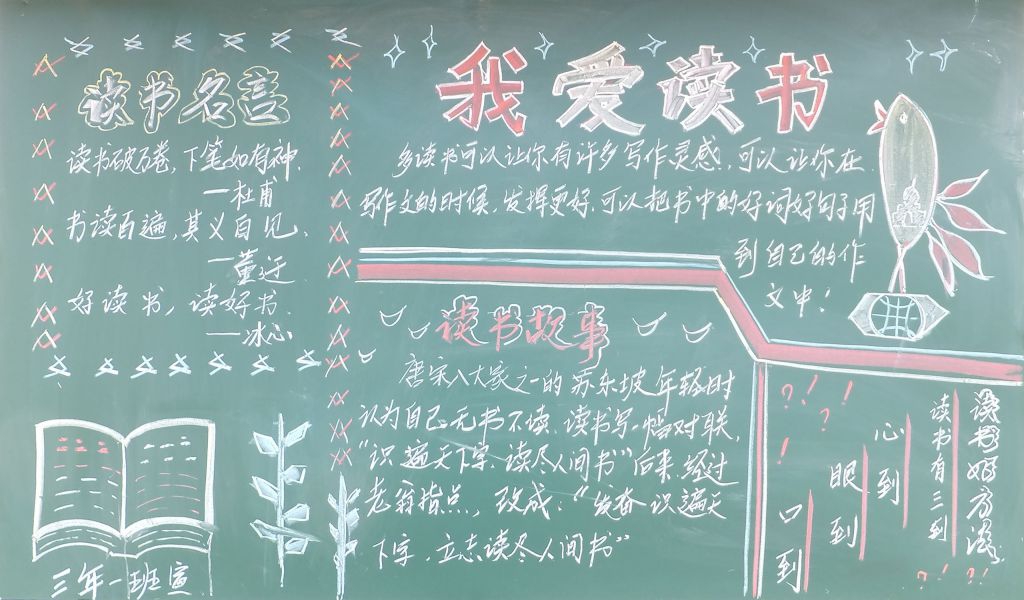 读书名言
读书破万卷,下笔如有神.
—杜甫
书读百遍,其义自见、
—董迂
好读书,读好书.
—冰心
三年一班宣
我爱读书
多读书可以让你有许多写作灵感.可以让你在
写作文的时候,发挥更好.可以把书中的好词好句子用
到自己的作
文中!
读书故事
唐宋八大家之一的苏东坡年轻时
认为自己无书不读.读书写一幅对联,
“识遍天下字.读尽人间书”后来,经过
老翁指点,改成:“发奋识遍天
下字,立志读尽人间书”
读书好方法
读书有三到
心到
眼到
口到